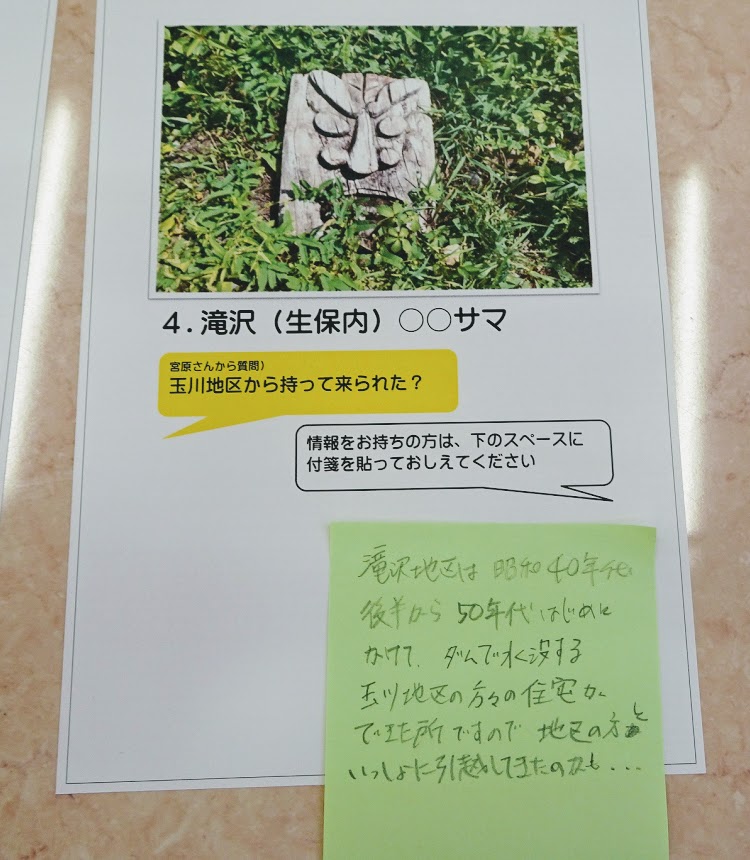 4.滝沢（生保内）○○サマ
宮原さんから質問）
玉川地区から持って来られた？
情報をお持ちの方は、下のスペースに
付箋を貼っておしえてください
滝沢地区は 昭和40年代
後半から 50年代はじめに
かけて、ダムで水没する
玉川地区の方々の住宅が
できた所ですので 地区の方と
いっしょに引越してきたのかも...